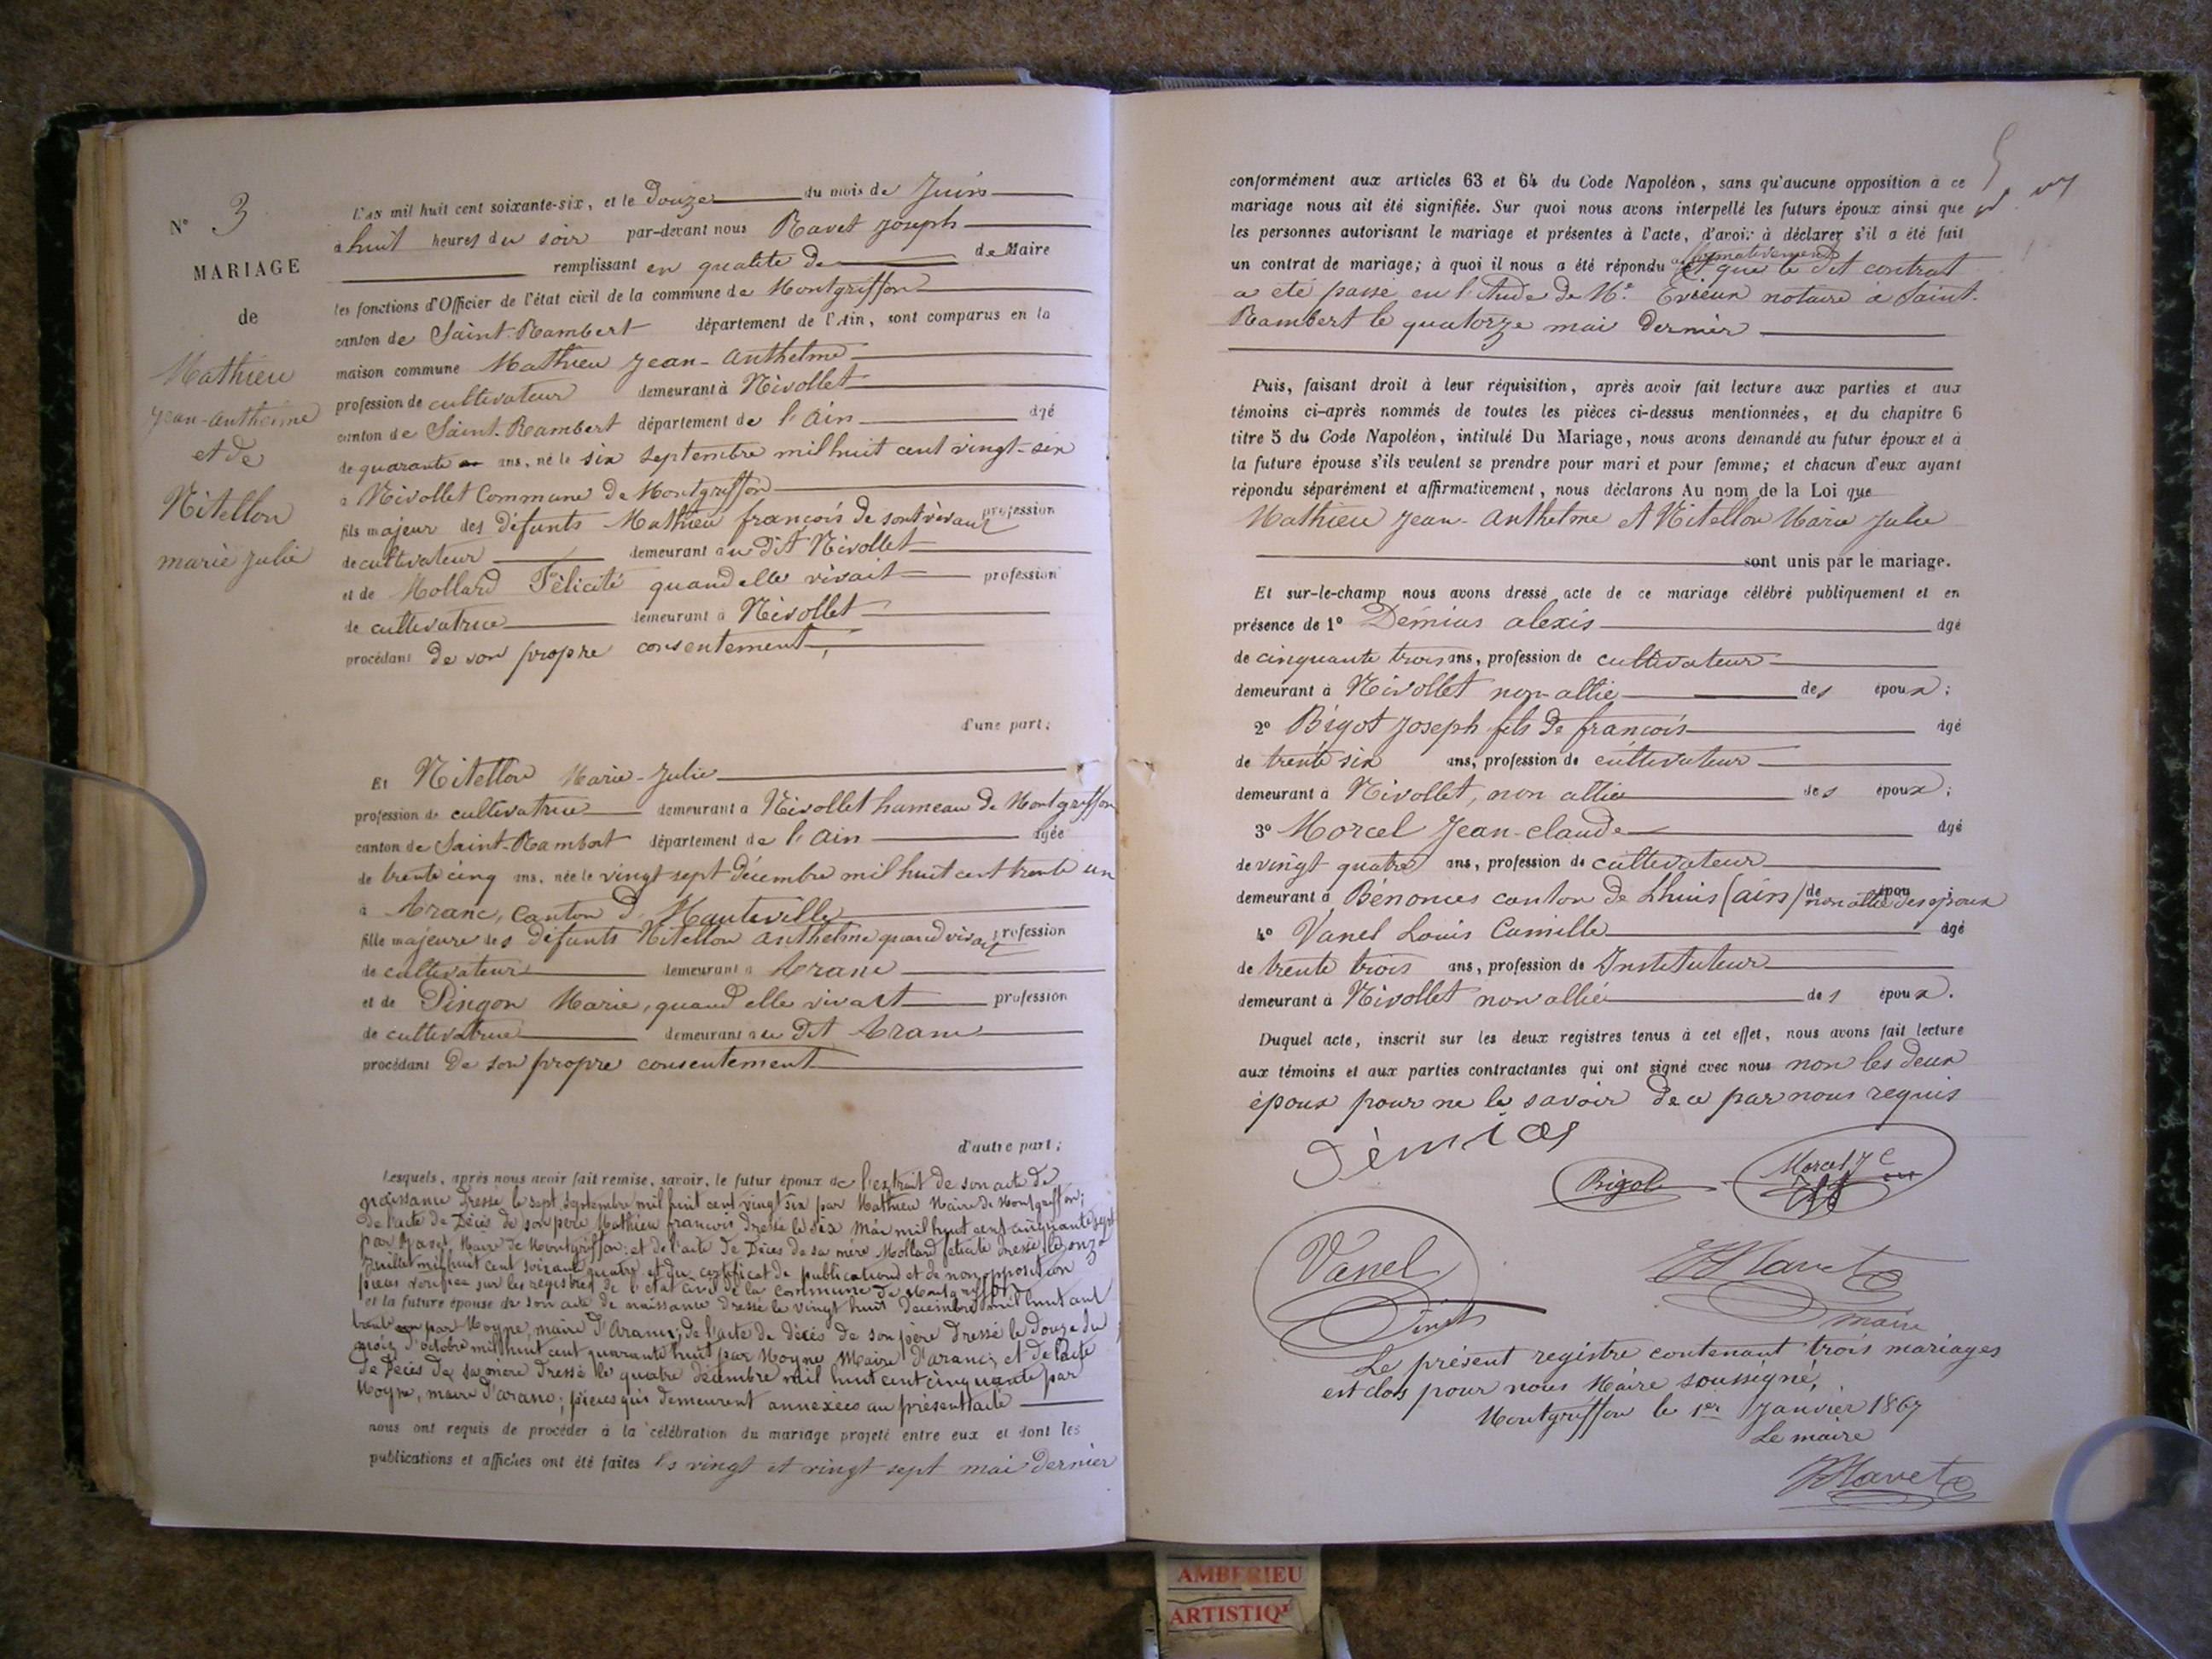 N° 3
MARIAGE
de
Mathieu
Jean-Anthelme
et de
Nitellon
marie julie
L'AN mil huit cent soixante-six, et le Douze du mois de Juin
à huit heures du soir par-devant nous Ravet Joseph
remplissant en qualité de de Maire
les fonctions d'Officier de l'état civil de la commune de Montgriffon
canton de Saint-Rambert département de l'Ain, sont comparus en la
maison commune Mathieu Jean-Anthelme
profession de cultivateur demeurant à Nivollet
canton de Saint-Rambert département de l'Ain âgé
de quarante ans, né le six septembre mil huit cent vingt-six
à Nivollet Commune de Montgriffon
fils majeur des défunts Mathieu françois de sont vivant profession
de cultivateur demeurant au dit Nivollet
et de Mollard Félicité quand elle vivait profession
de cultivatrice demeurant à Nivollet
procédant de son propre consentement,
d'une part;
Et Nitellon Marie-Julie
profession de cultivatrice demeurant à Nivollet hameau de Montgriffon
canton de Saint-Rambert département de l'Ain âgée
de trente cinq ans, née le vingt sept décembre mil huit cent trente un
à Aranc, Canton d'Hauteville
fille majeure des défunts Nitellon Anthelme quand vivait profession
de cultivateur demeurant à Aranc
et de Pingon Marie, quand elle vivait profession
de cultivatrice demeurant au dit Aranc
procédant de son propre consentement
d'autre part;
Lesquels, après nous avoir fait remise, savoir, le futur époux de l'extrait de son acte de
naissance dressé le sept septembre mil huit cent vingt six par Mathieu Maire de Montgriffon;
de l'acte de Décès de son père Mathieu françois dressé le six Mai mil huit cent cinquante sept
par Ravet Maire de Montgriffon: et de l'acte de Décès de sa mère Mollard félicité dressé le onze
Juillet mil huit cent soixante quatre et du certificat de publications et de non opposition
pièces vérifiée sur les registres de l'état civil de la commune de Montgriffon
et la future épouse de son acte de naissance dressé le vingt huit décembre mil huit cent
trente un par Moyne, maire d'Aranc; de l'acte de décès de son père dressé le douze du
mois d'octobre mil huit cent quarante huit par Moyne Maire d'aranc; et de l'acte
de Décès de sa mère dressé le quatre décembre mil huit cent cinquante par
Moyne, maire d'aranc; pièces qui demeurent annexées au présent acte
nous ont requis de procéder à la célébration du mariage projeté entre eux et dont les
publications et affiches ont été faites les vingt et vingt sept mai dernier
conformément aux articles 63 et 64 du Code Napoléon, sans qu'aucune opposition à ce
mariage nous ait été signifiée. Sur quoi nous avons interpellé les futurs époux ainsi que
les personnes autorisant le mariage et présentes à l'acte, d'avoir à déclarer s'il a été fait
un contrat de mariage; à quoi il nous a été répondu affirmativement et que le dit contrat
a été passé en l'étude de Me. Evieux notaire à Saint-
Rambert le quatorze mai dernier
Puis, faisant droit à leur réquisition, après avoir fait lecture aux parties et aux
témoins ci-après nommés de toutes les pièces ci-dessus mentionnées, et du chapitre 6
titre 5 du Code Napoléon, intitulé Du Mariage, nous avons demandé au futur époux et à
la future épouse s'ils veulent se prendre pour mari et pour femme; et chacun d'eux ayant
répondu séparément et affirmativement, nous déclarons Au nom de la Loi que
Mathieu Jean-Anthelme et Nitellon Marie Julie
sont unis par le mariage.
Et sur-le-champ nous avons dressé acte de ce mariage célébré publiquement et en
présence de 1° Démias alexis âgé
de cinquante trois ans, profession de cultivateur
demeurant à Nivollet non allié des époux;
2° Bigot Joseph fils de françois âgé
de trente six ans, profession de cultivateur
demeurant à Nivollet, non allié des époux;
3° Morcel Jean-claude âgé
de vingt quatre ans, profession de cultivateur
demeurant à Bénonces canton de Lhuis (ain) de non allié des époux épou ;
4° Vanel Louis Camille âgé
de trente trois ans, profession de Instituteur
demeurant à Nivollet non allié des époux.
Duquel acte, inscrit sur les deux registres tenus à cet effet, nous avons fait lecture
aux témoins et aux parties contractantes qui ont signé avec nous non les deux
époux pour ne le savoir de ce par nous requis
Démias
Bigot
Morcel J C
Vanel
Ravet
maire
Le présent registre contenant trois mariages
est clos pour nous Maire soussigné,
Montgriffon le 1er Janvier 1867
Le maire
Ravet
AMBERIEU
ARTISTIQ